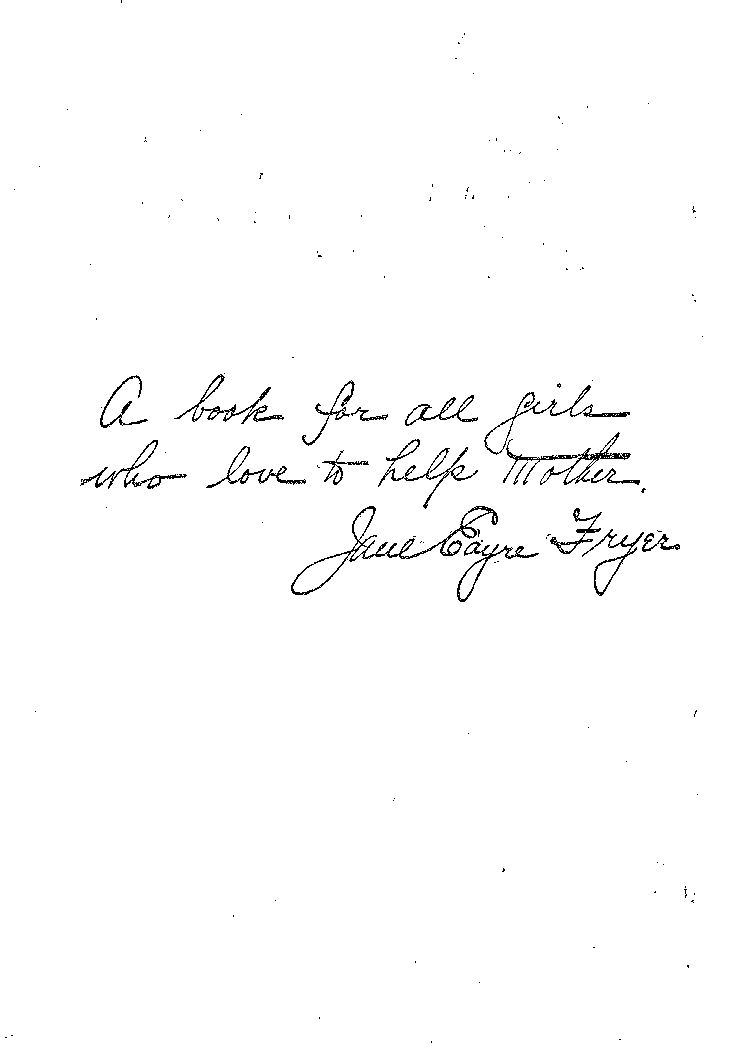 A book for all girls
who love to help Mother.
Jane Eayre Fryer